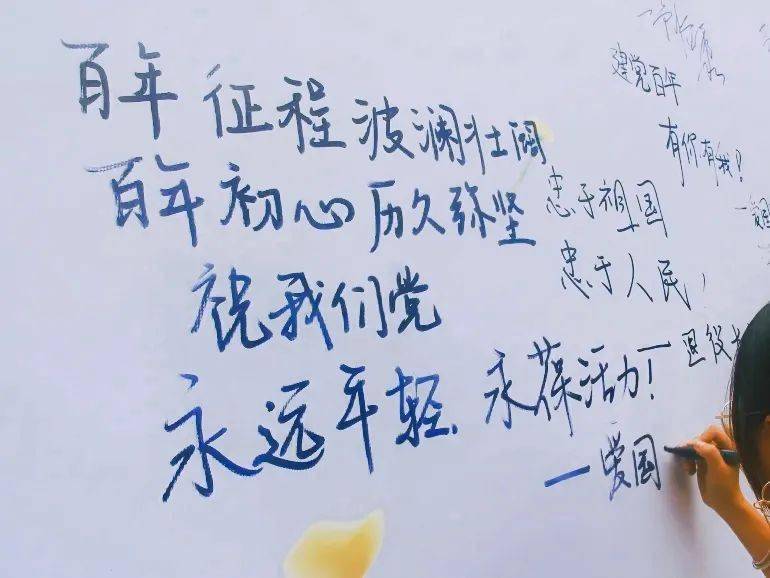 百年征程波澜壮阔
百年初心历久弥坚
祝我们党
永远年轻
永葆活力！
一爱国
忠于祖国
忠于人民！
建党百年
有你有我！
一爱国
退役